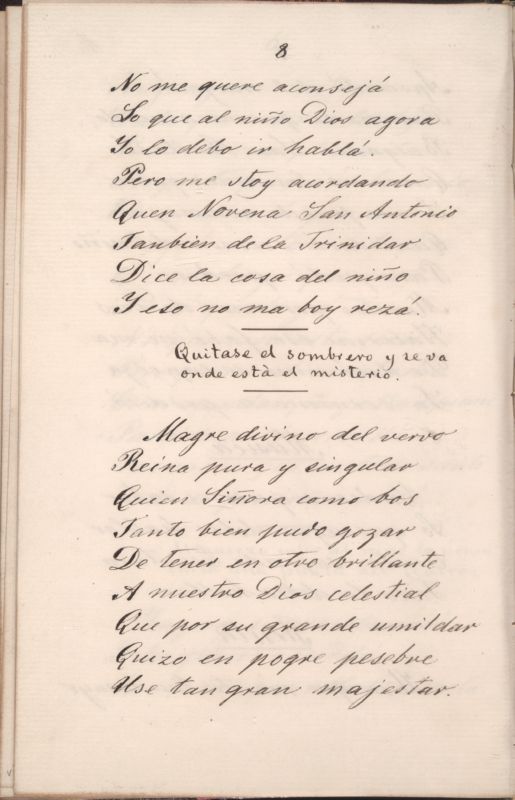 8
No me quere aconsejá
Lo que al niño Dios agora
Yo lo debo ir hablá.
Pero me stoy acordando
Quen Novena San Antonio
Tanbien de la Trinidar
Dice la cosa del niño
Y eso no ma boy rezá.
Quitase el sombrero y se va
onde està el misterio.
Magre divino del vervo
Reina pura y singular
Quien Siñora como bos
Tanto bien pudo gozar
De tener en otro brillante
A nuestro Dios celestial
Que por su grande umildar
Quizo en pogre pesebre
Use tan gran majestar.